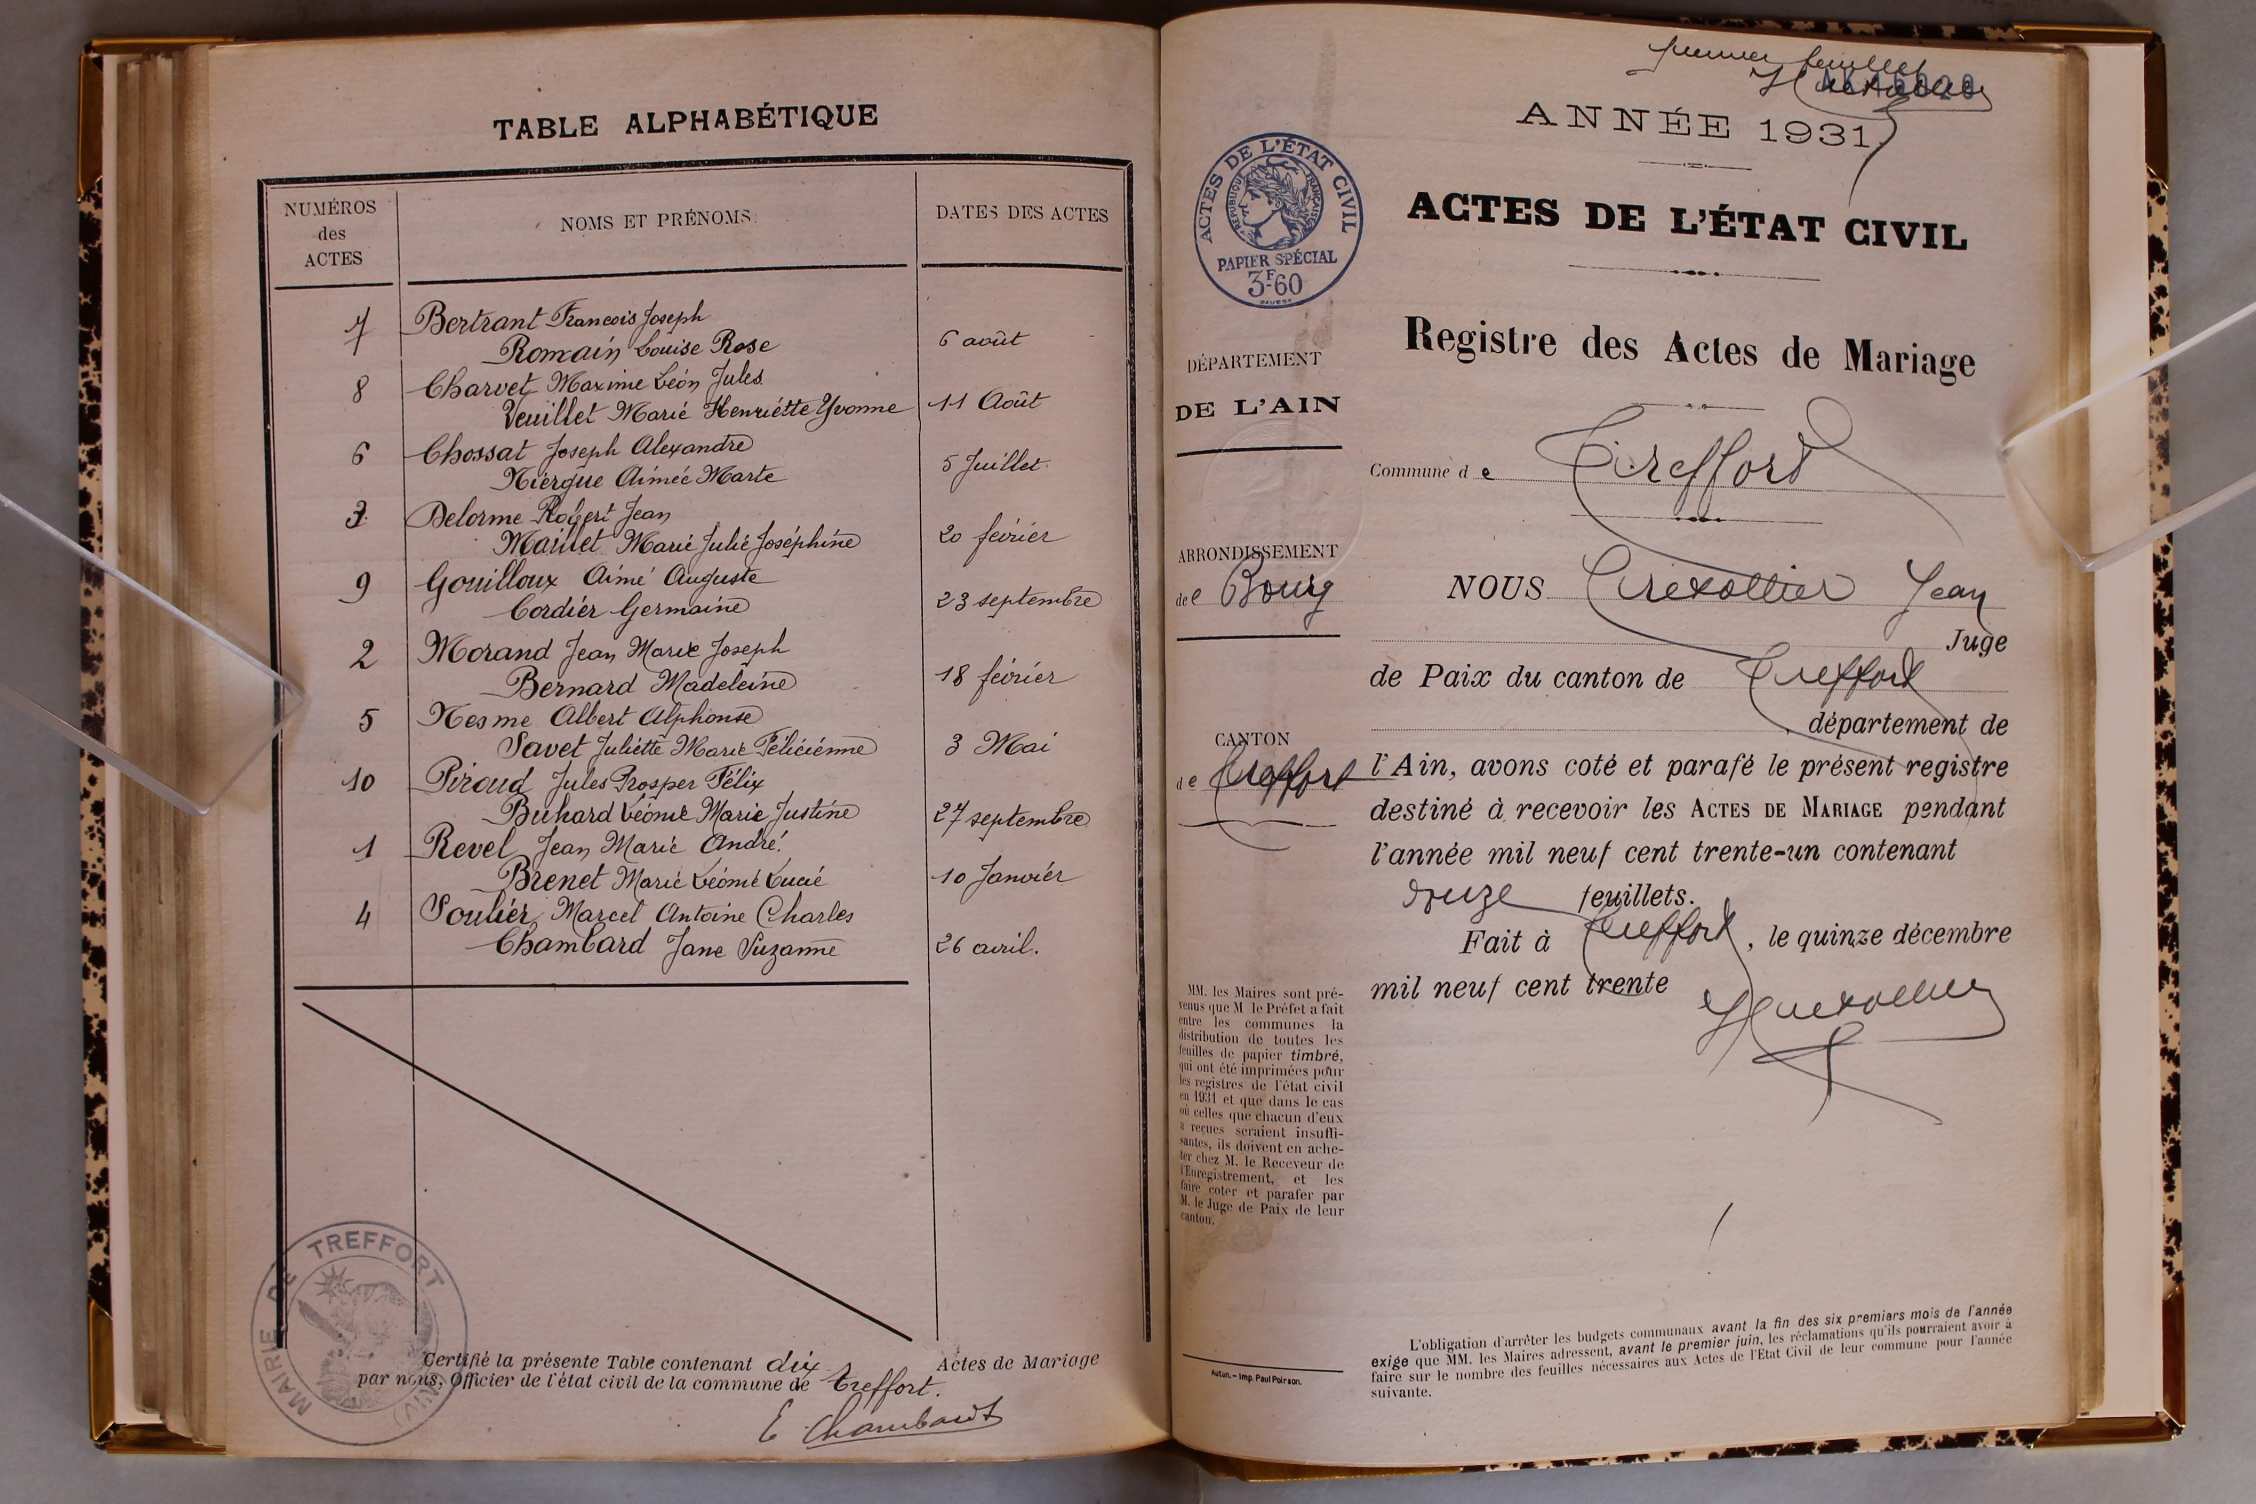 TABLE ALPHABÉTIQUE
NUMÉROS
des
ACTES
NOMS ET PRÉNOMS
DATES DES ACTES
7 Bertrant Francois Joseph
Romain Louise Rose 6 août
8 Charvet Maxime Léon Jules
Veuillet Marie Henriette Yvonne 11 Août
6 Chossat Joseph Alexandre
Niergue Aimée Marte 5 Juillet
3 Delorme Robert Jean
Maillet Marie Julie Joséphine 20 février
9 Gouilloux Aimé Auguste
Cordier Germaine 23 septembre
2 Morand Jean Marie Joseph
Bernard Madeleine 18 février
5 Nesme Albert Alphonse
Savet Juliette Marie Féliciénne 3 Mai
10 Piroud Jules Prosper Félix
Buhard Léonie Marie Justine 27 septembre
1 Revel Jean Marie André
Brenet Marie Léonie Lucie 10 Janvier
4 Soulier Marcel Antoine Charles
Chambard Jane Suzanne 26 avril.
MAIRIE DE TREFFORT (AIN)
Certifié la présente Table contenant dix Actes de Mariage
par nous, Officier de l'état civil de la commune de Treffort.
E Chambard
premier feuillet
ANNÉE 1931
ACTES DE L'ÉTAT CIVIL
RÉPUBLIQUE FRANÇAISE
PAPIER SPÉCIAL
3F60
ACTES DE L'ÉTAT CIVIL
Registre des Actes de Mariage
DÉPARTEMENT
DE L'AIN
Commune de Treffort
ARRONDISSEMENT
de Bourg
NOUS Trexollier Jean
Juge
de Paix du canton de Treffort
département de
CANTON
de Treffort
l'Ain, avons coté et parafé le présent registre
destiné à recevoir les ACTES DE MARIAGE pendant
l'année mil neuf cent trente-un contenant
douze feuillets.
Fait à Treffort, le quinze décembre
mil neuf cent trente
MM. les Maires sont pré-
venus que M le Préfet a fait
entre les communes la
distribution de toutes les
feuilles de papier timbré,
qui ont été imprimées pour
les registres de l'état civil
en 1931 et que dans le cas
où celles que chacun d'eux
a reçues seraient insuffi-
santes, ils doivent en ache-
ter chez M. le Receveur de
l'Enregistrement, et les
faire coter et parafer par
M. le Juge de Paix de leur
canton.
Autun. - Imp. Paul Poirson.
L'obligation d'arrêter les budgets communaux avant la fin des six premiers mois de l'année
exige que MM. les Maires adressent, avant le premier juin, les réclamations qu'ils pourraient avoir à
faire sur le nombre des feuilles nécessaires aux Actes de l'État Civil de leur commune pour l'année
suivante.